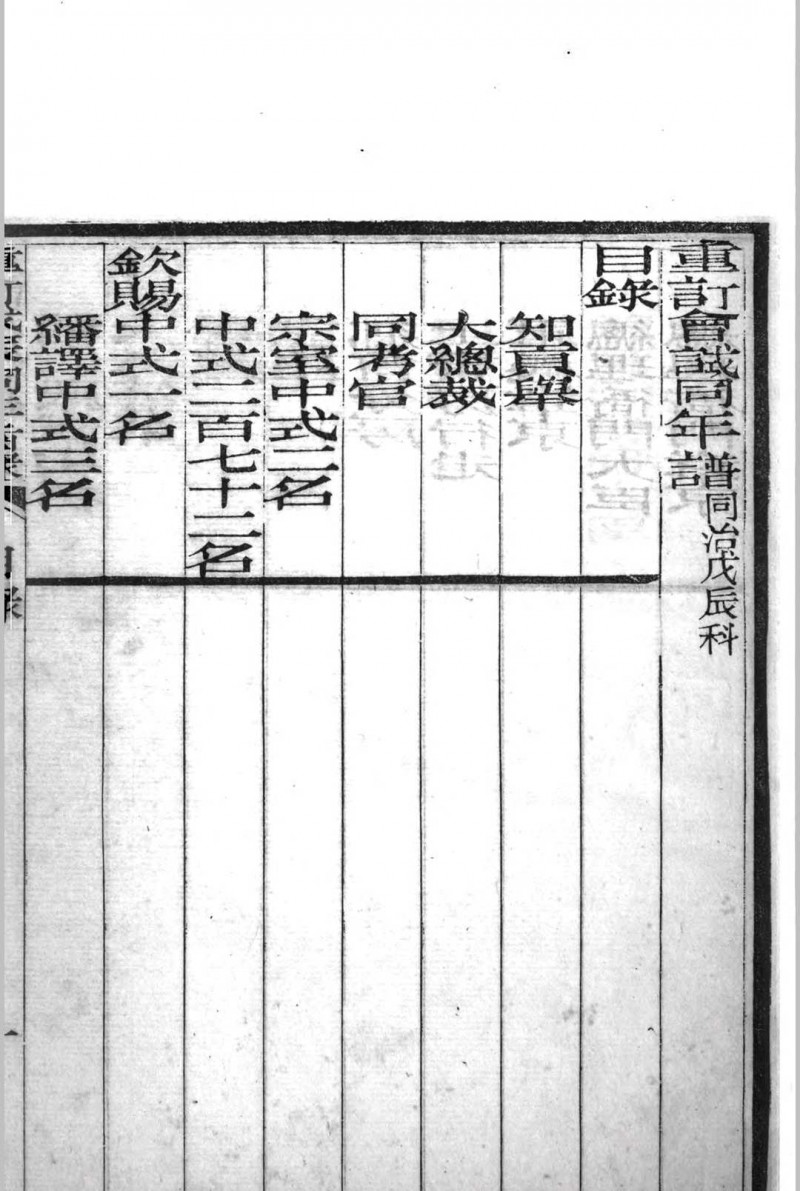 重訂會試同年譜同治戊辰科
目錄
知貢舉
大總裁
同考官
宗室中式二名
中式二百七十二名
欽賜中式一名
繙譯中式三名